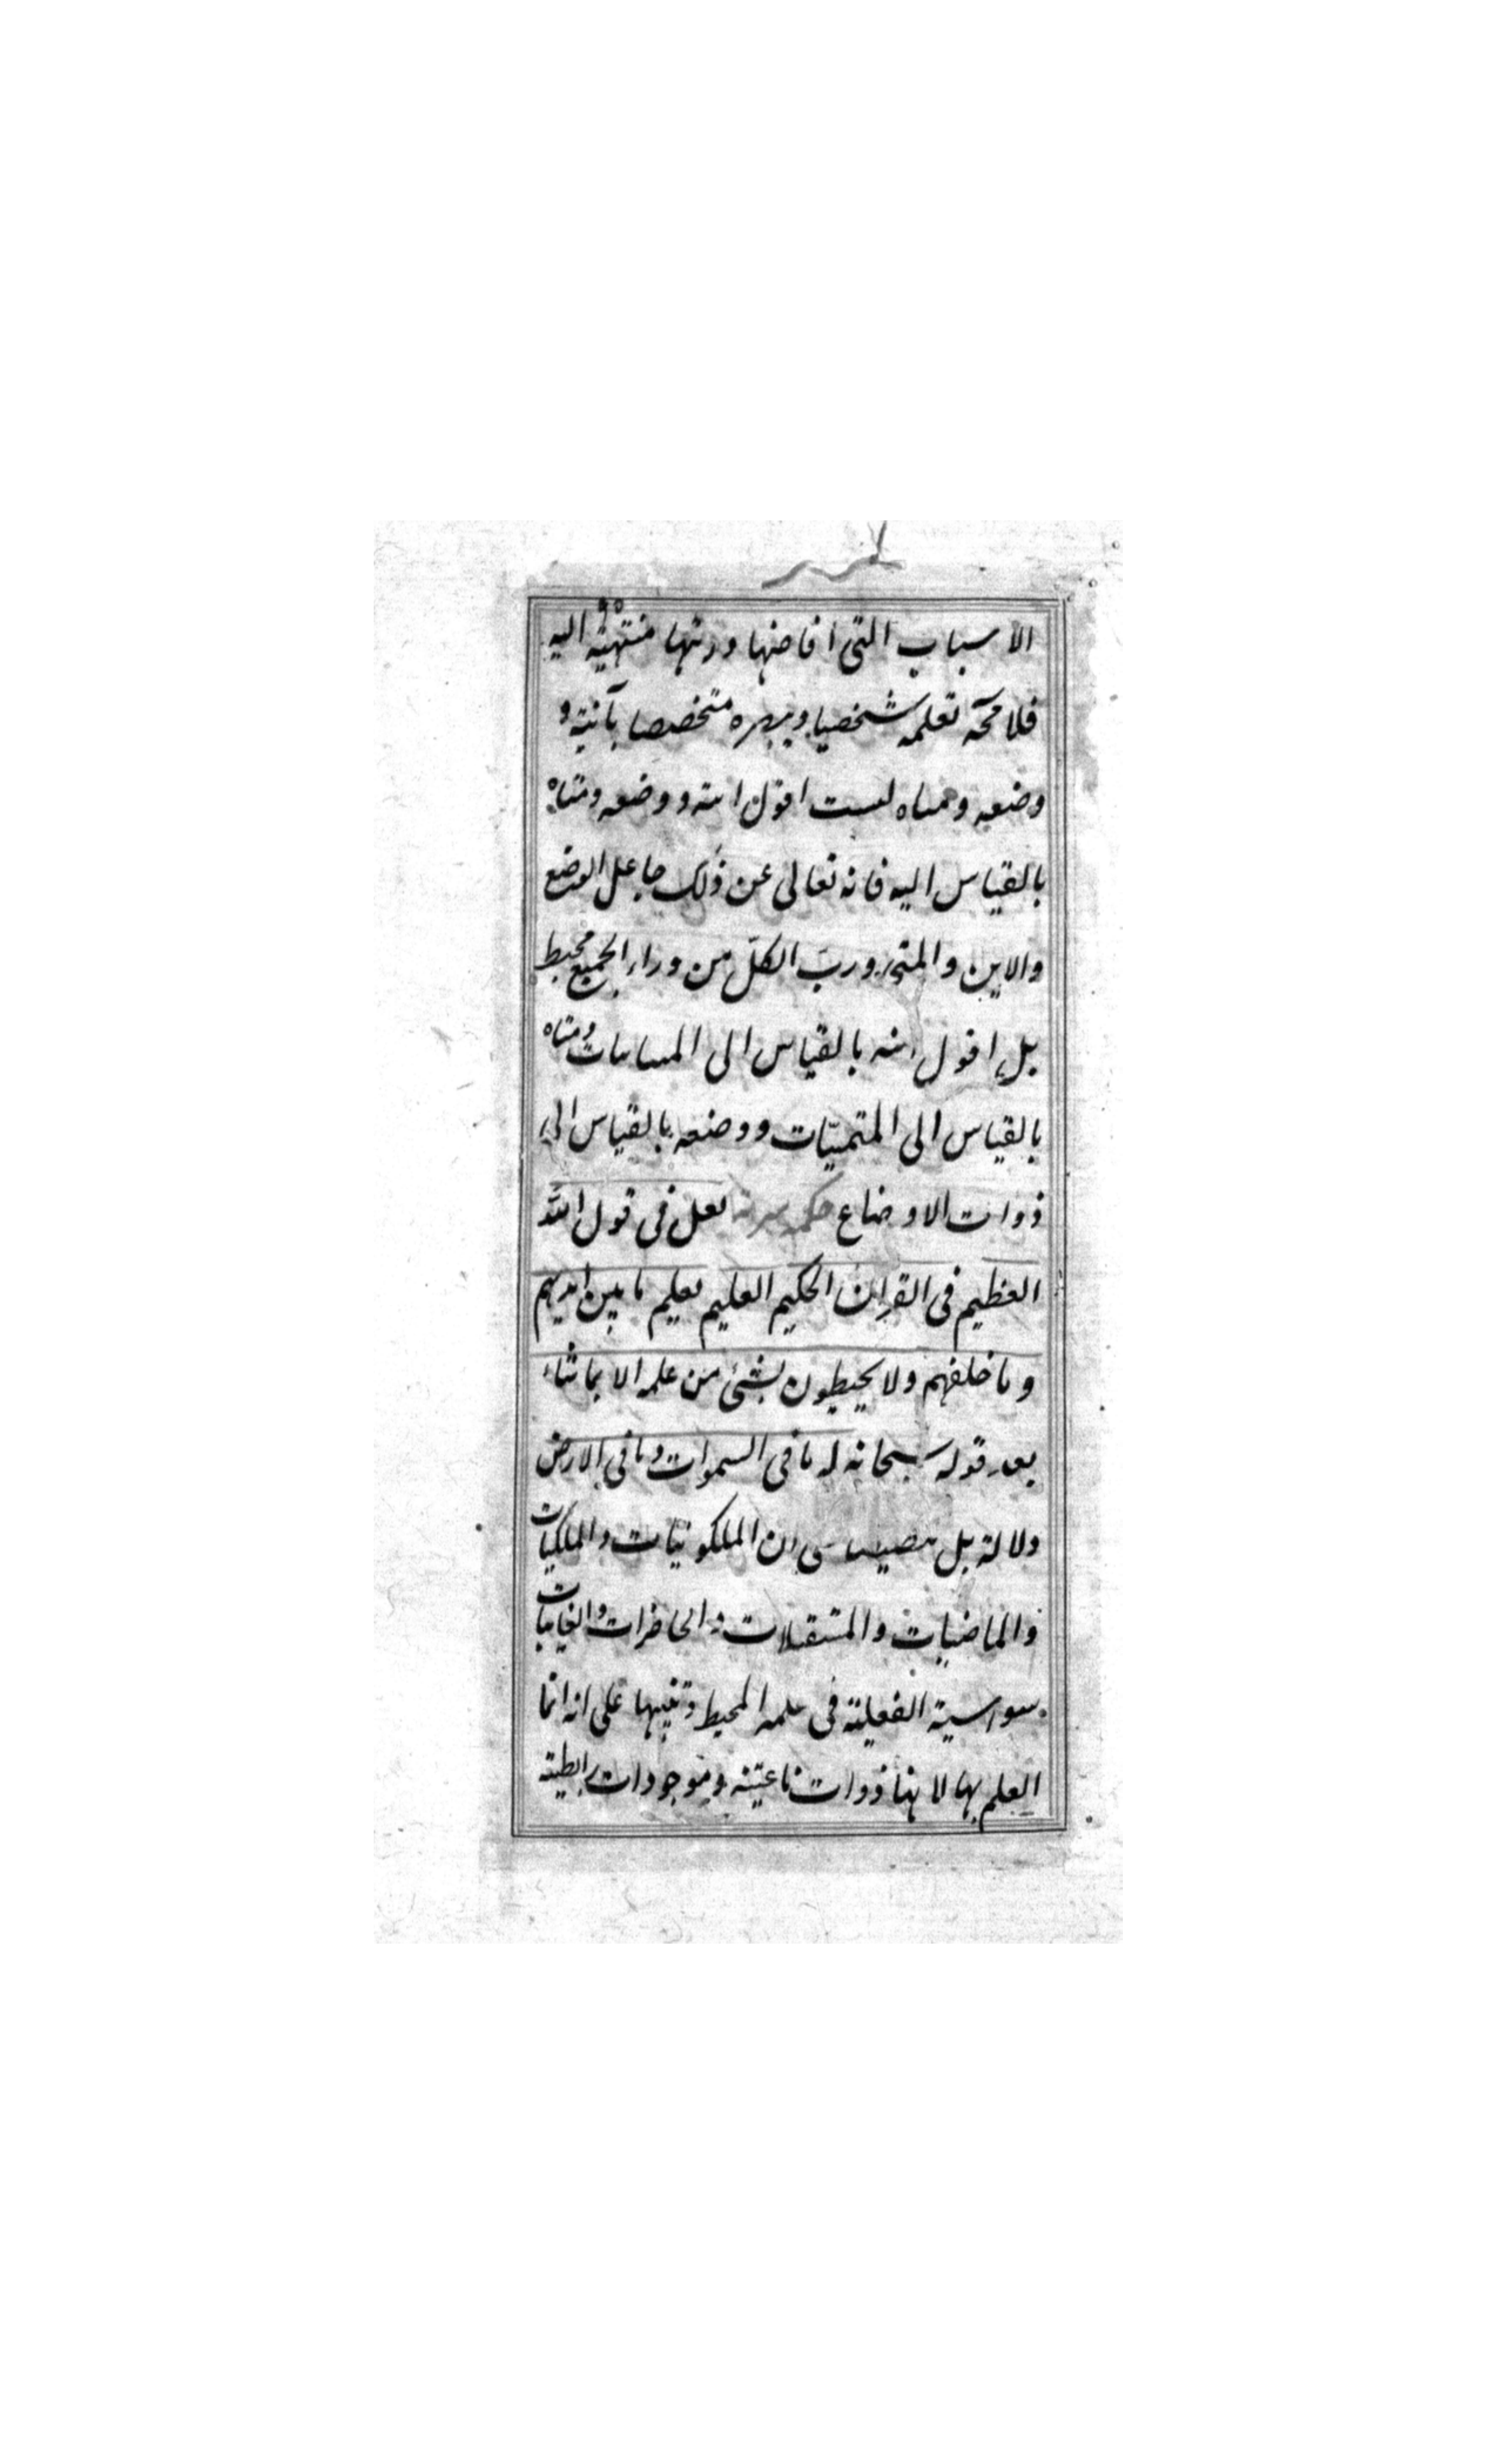 الاسباب التى افاضها ورتبها منتهية اليه
فلا محة تعلمه شخصيا ويبصره متخصصا بآنيته و
وضعه ومتاه لست اقول اينه ووضعه ومتاه
بالقياس اليه فانه تعالى عن ذلك جاعل الوضع
والاين والمتى ورب الكلّ من وراء الجميع محيط
بل اقول اينه بالقياس الى المساسات ومتاه
بالقياس الى المتميّات ووضعه بالقياس الى
ذوات الاوضاع حكمه لعل فى قول الله
العظيم فى القران الحكيم العليم يعلم ما بين ايديهم
وما خلفهم ولا يحيطون بشئ من علمه الا بما شاء
بعد قوله سبحانه له ما فى السموات وما فى الارض
دلالة بل ان الملكوتيات والملكيات
والماضيات والمستقبلات والحاضرات والغايبات
سواسية الفعلية فى علمه المحيط وتنبيها على انه انما
العلم بها لانها ذوات ناعتيه وموجودات رابطية